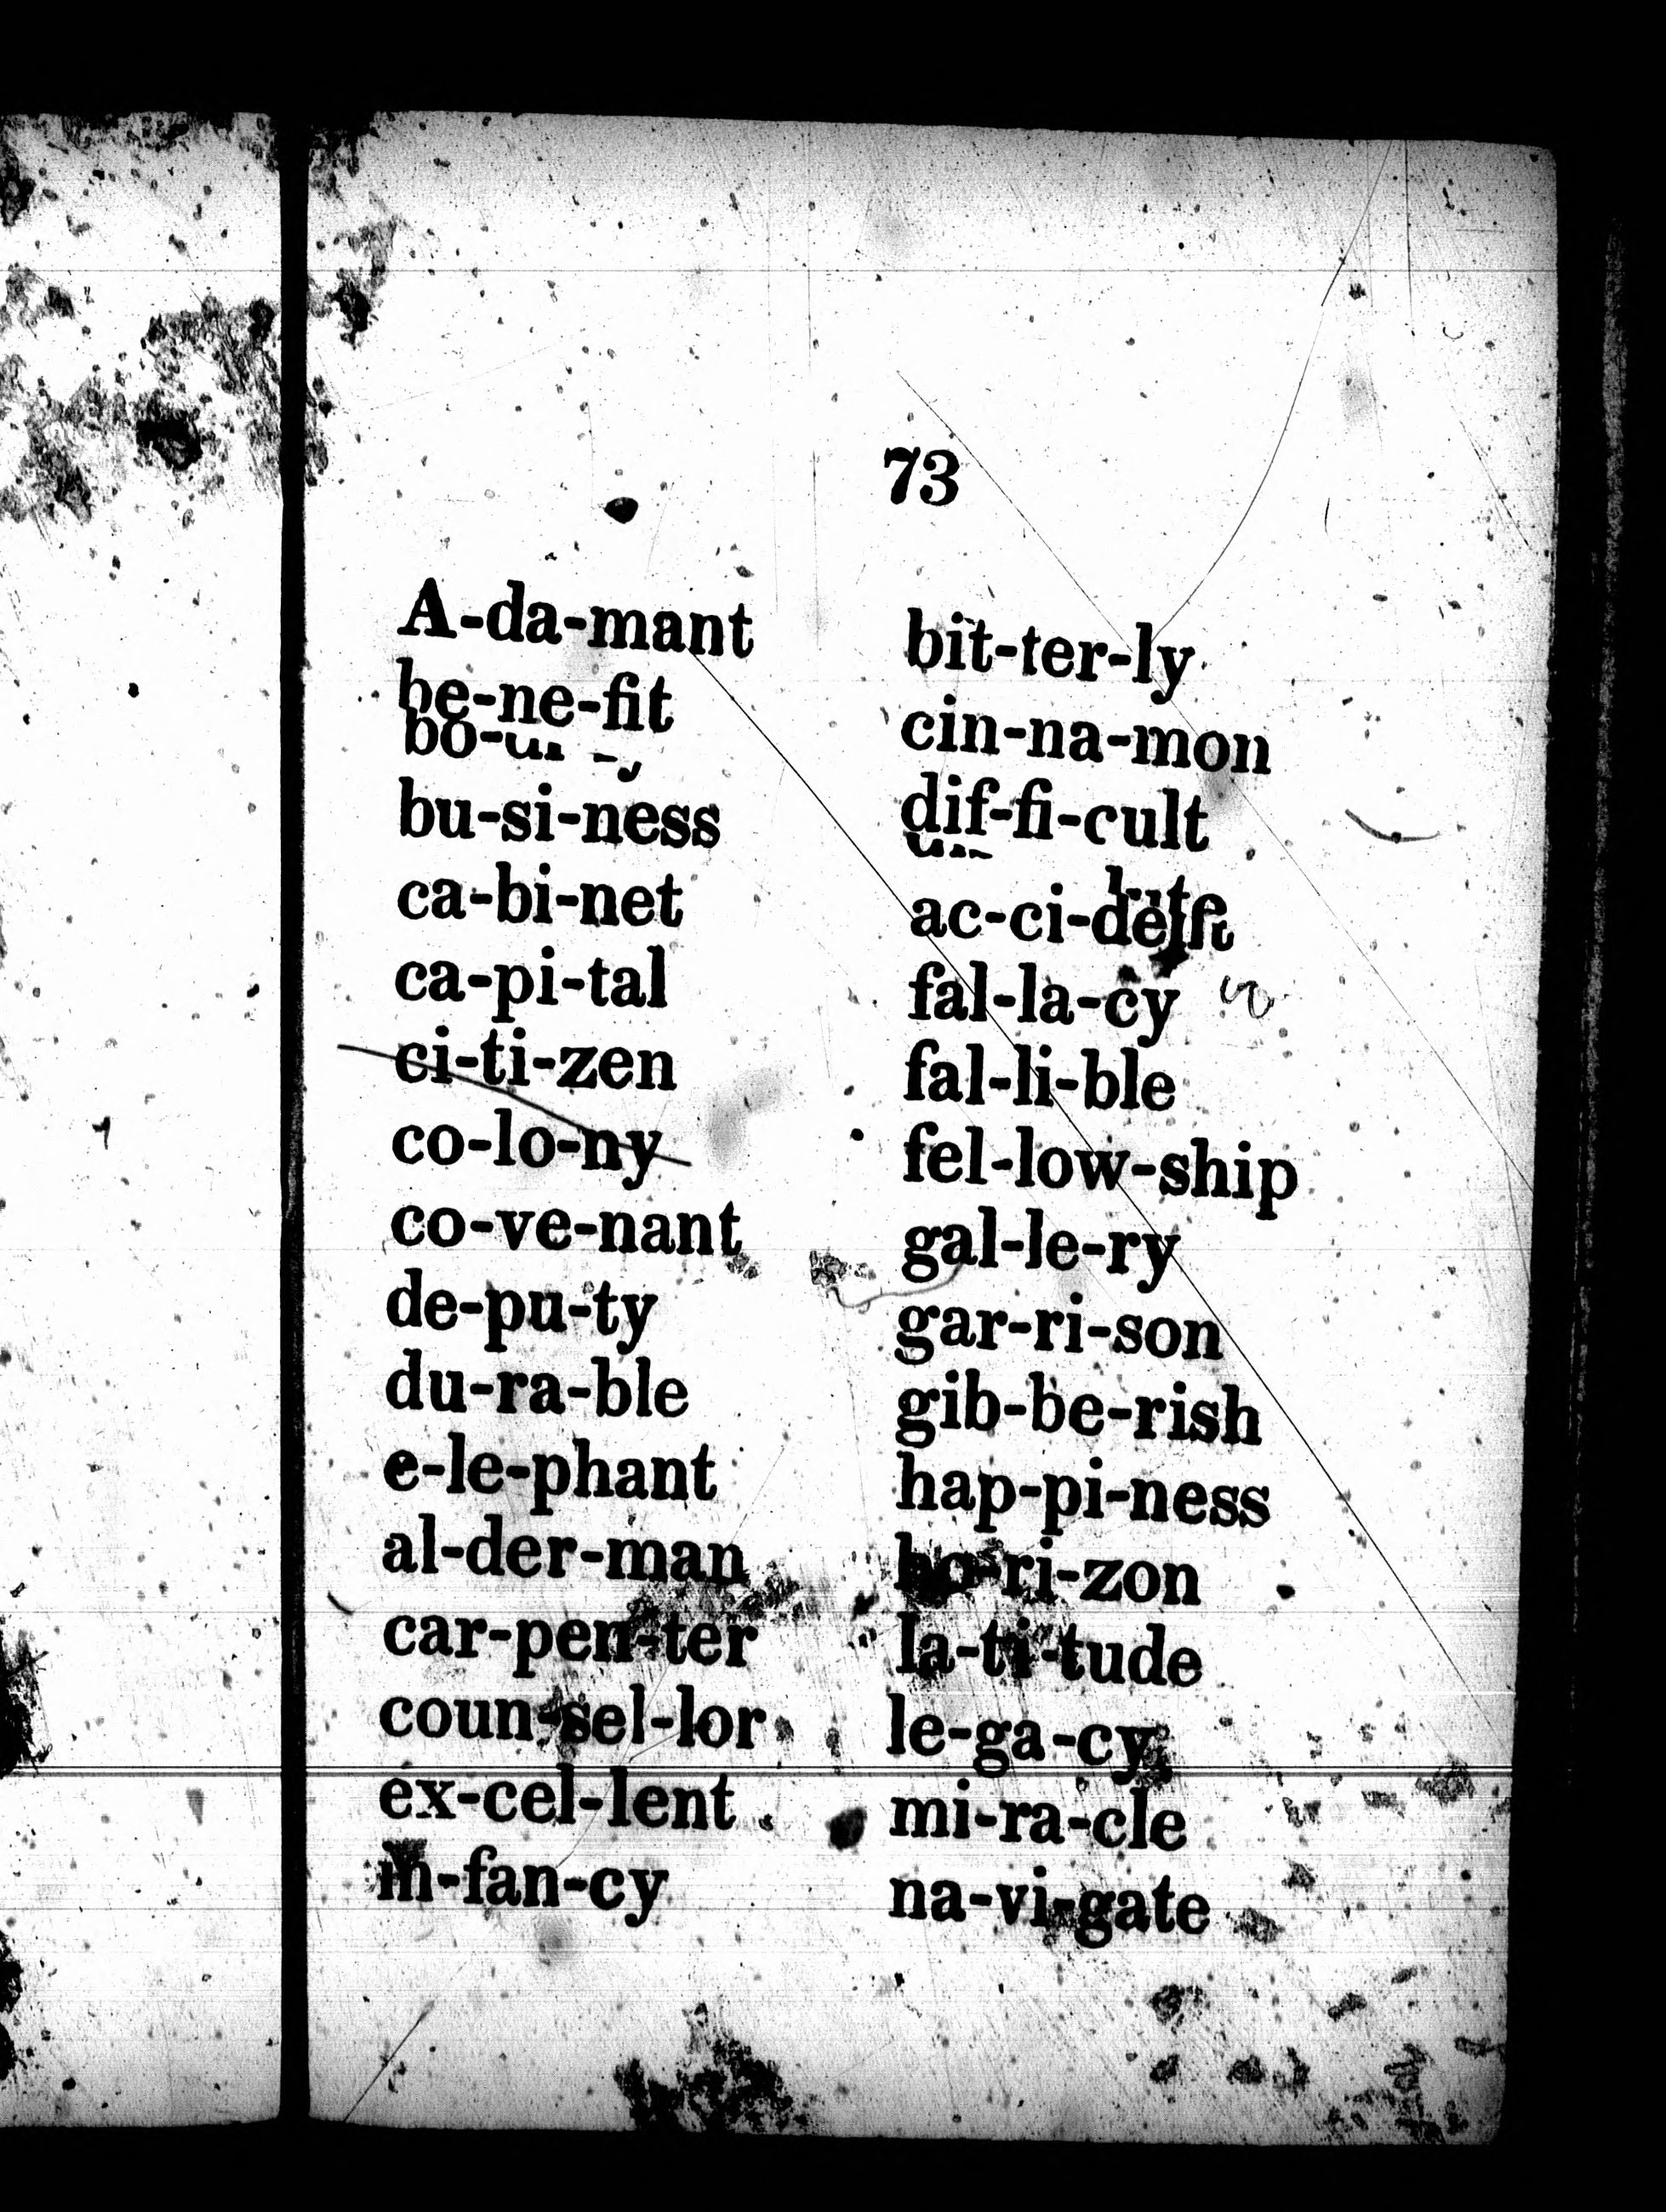 73
A-da-mant
be-ne-fit
bu-si-ness
ca-bi-net
ca-pi-tal
ci-ti-zen
co-lo-ny
co-ve-nant
de-pu-ty
du-ra-ble
e-le-phant
al-der-man
car-pen-ter
coun-sel-lor
ex-cel-lent
in-fan-cy
bit-ter-ly
cin-na-mon
dif-fi-cult
ac-ci-dent
fal-la-cy
fal-li-ble
fel-low-ship
gal-le-ry
gar-ri-son
gib-be-rish
hap-pi-ness
ho-ri-zon
la-ti-tude
le-ga-cy
mi-ra-cle
na-vi-gate